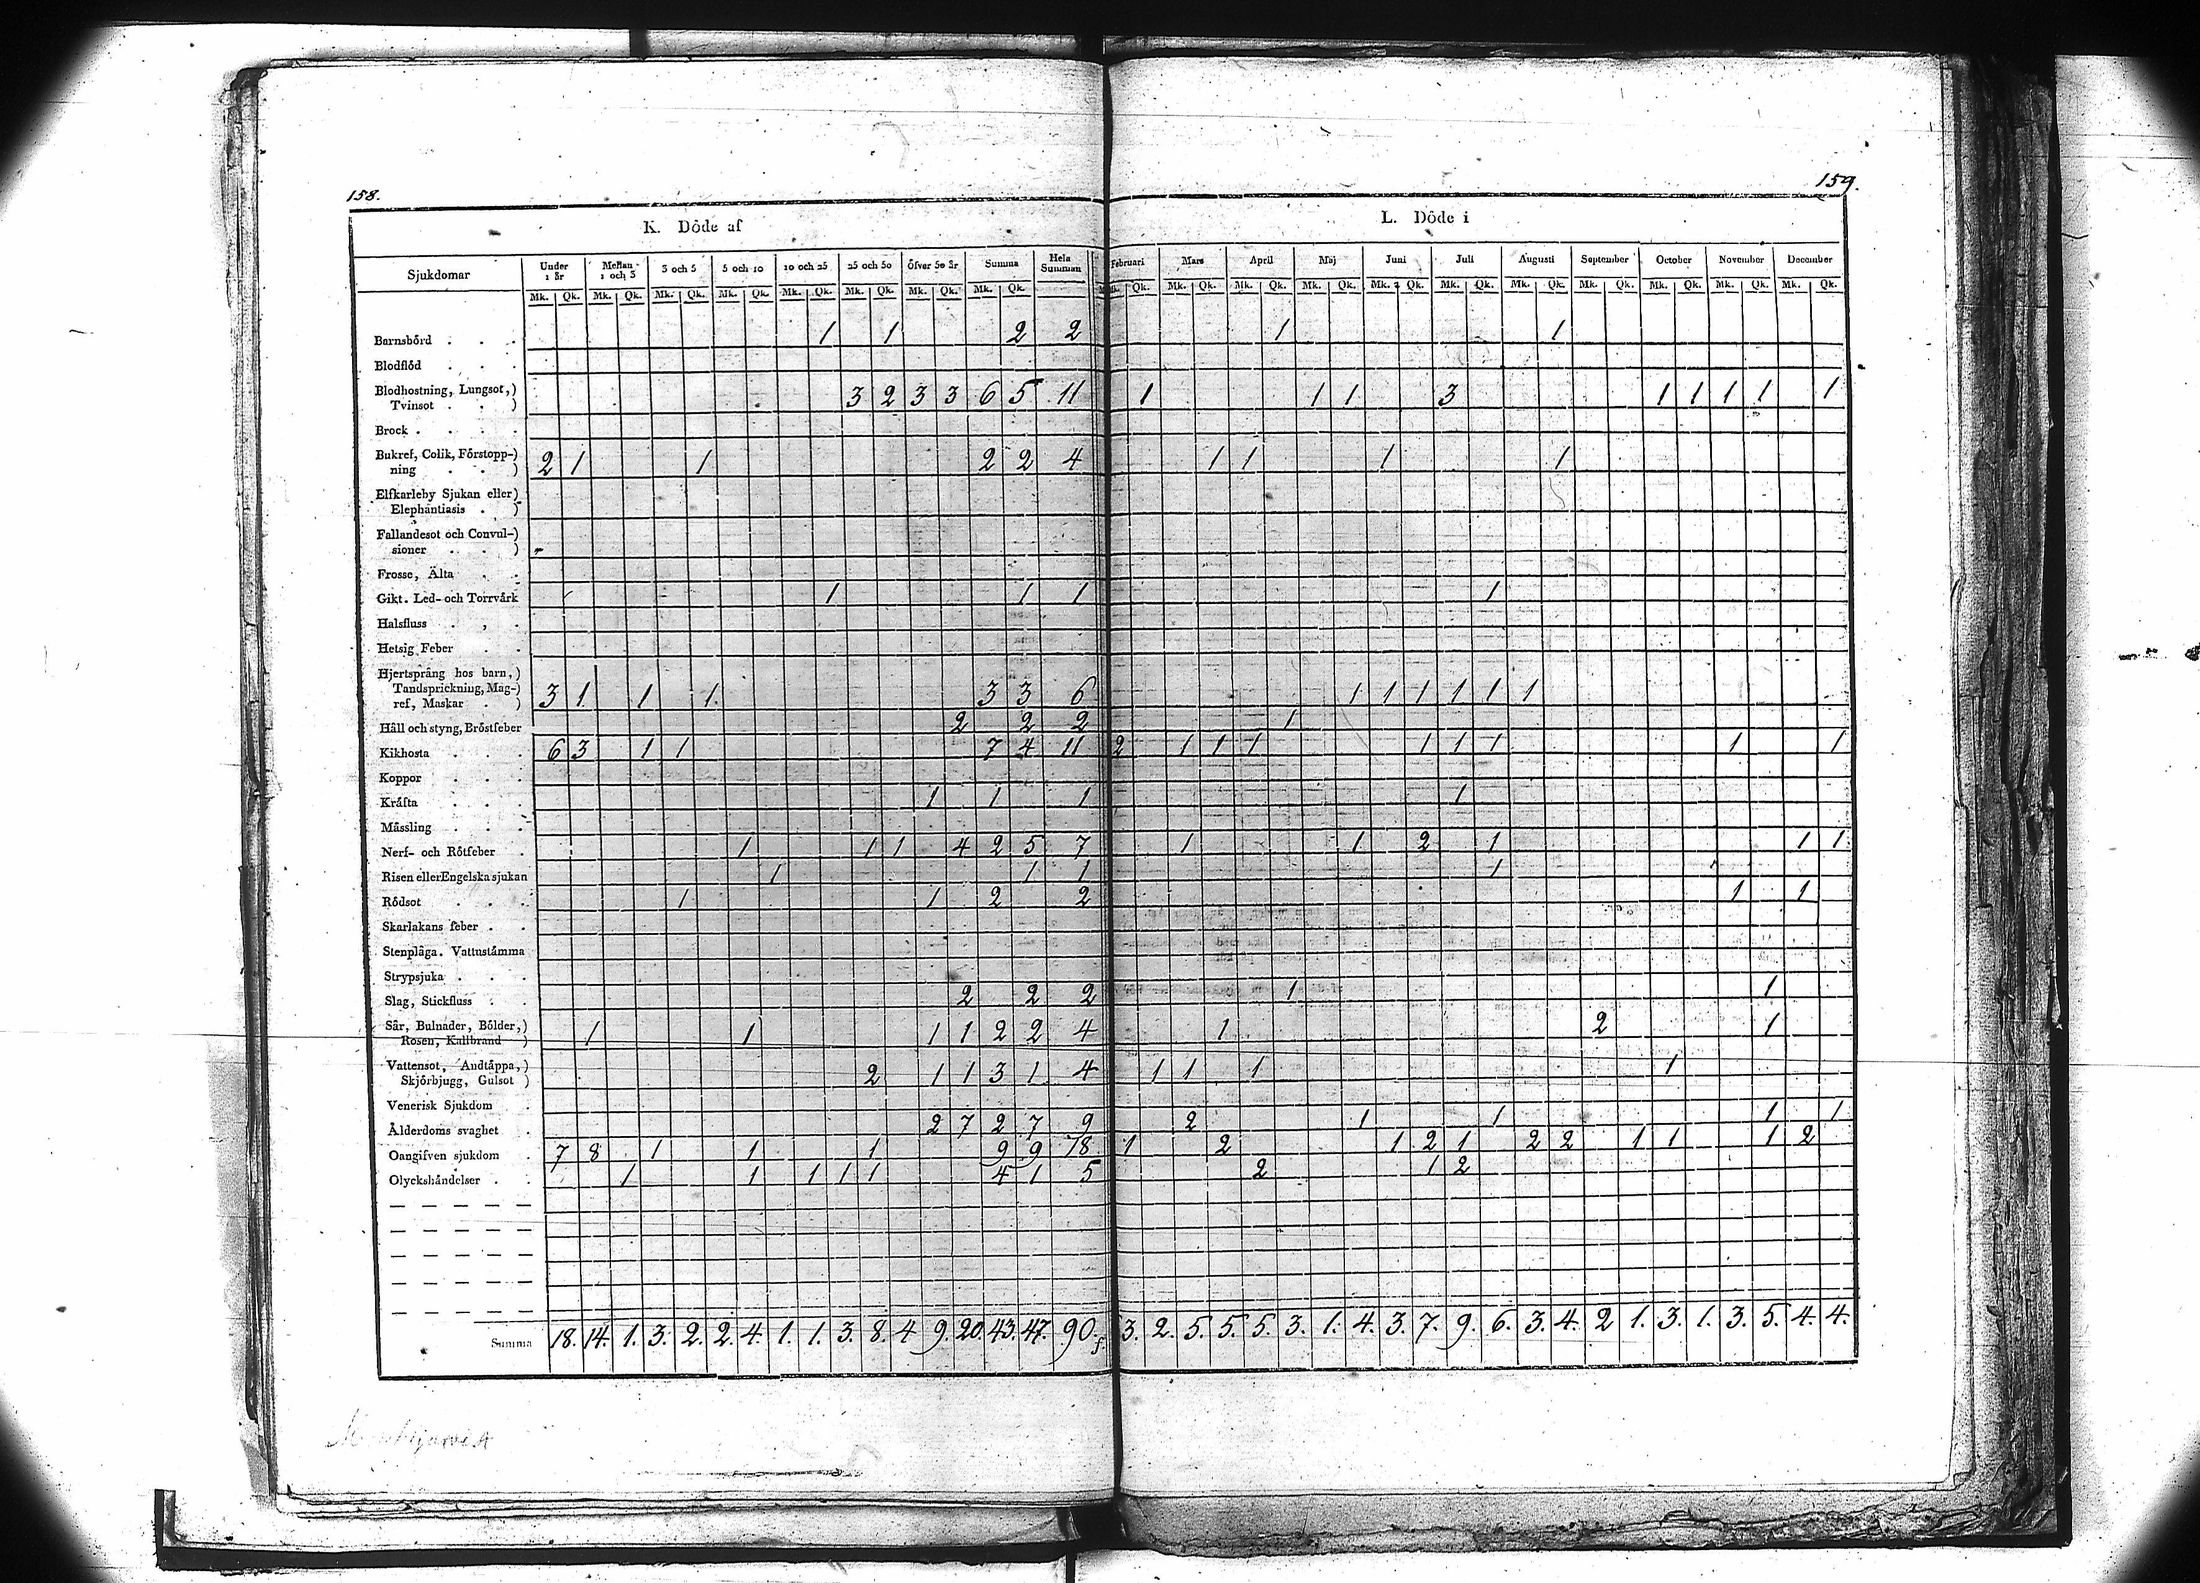 158.
159.
K. Döde af
L. Döde i
Sjukdomar Under 1 år Mellan 1 och 3 3 och 5 5 och 10 10 och 25 25 och 50 Öfver 50 år Summa Hela Summan Februari Mars April Maj Juni Juli Augusti September October November December
Mk. Qk. Mk. Qk. Mk. Qk. Mk. Qk. Mk. Qk. Mk. Qk. Mk. Qk. Mk. Qk. Mk. Qk. Mk. Qk. Mk. Qk. Mk. Qk. Mk. Qk. Mk. Qk. Mk. Qk. Mk. Qk. Mk. Qk. Mk. Qk. Mk. Qk.
Barnsbörd . . . 1 1 2 2 1 1
Blodflöd . . .
Blodhostning, Lungsot,)
Tvinsot . . ) 3 2 3 3 6 5 11 1 1 1 3 1 1 1 1 1
Brock . . . .
Bukref, Colik, Förstopp-)
ning . . ) 2 1 1 2 2 4 1 1 1 1
Elfkarleby Sjukan eller)
Elephantiasis . )
Fallandesot och Convul-)
sioner . . )
Frosse, Älta . .
Gikt. Led- och Torrvärk 1 1 1 1
Halsfluss . , .
Hetsig Feber . .
Hjertsprång hos barn,)
Tandsprickning, Mag-)
ref, Maskar . ) 3 1 1 1 3 3 6 1 1 1 1 1 1
Håll och styng, Bröstfeber 2 2 2 1
Kikhosta . . . 6 3 1 1 7 4 11 2 1 1 1 1 1 1 1 1
Koppor . . .
Kräfta . . . 1 1 1 1
Mässling . . .
Nerf- och Rötfeber . 1 1 1 4 2 5 7 1 1 2 1 1 1
Risen eller Engelska sjukan 1 1 1 1
Rödsot . . . 1 1 2 2 1 1
Skarlakans feber . .
Stenplåga. Vattustämma
Strypsjuka . . .
Slag, Stickfluss . . 2 2 2 1 1
Sår, Bulnader, Bölder,)
Rosen, Kallbrand ) 1 1 1 1 2 2 4 1 2 1
Vattensot, Andtäppa,)
Skjörbjugg, Gulsot ) 2 1 1 3 1 4 1 1 1 1
Venerisk Sjukdom .
Ålderdoms svaghet . 2 7 2 7 9 2 1 1 1 1
Oangifven sjukdom . 7 8 1 1 1 9 9 18 1 2 1 2 1 2 2 1 1 1 2
Olyckshändelser . . 1 1 1 1 1 4 1 5 2 1 2
Summa 18. 14. 1. 3. 2. 2. 4. 1. 1. 3. 8. 4 9. 20. 43. 47. 90. 3. 2. 5. 5. 5. 3. 1. 4. 3. 7. 9. 6. 3. 4. 2 1. 3. 1. 3. 5. 4. 4.